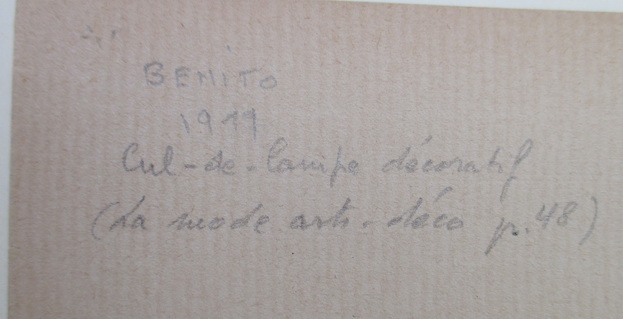 BENITO
1919
Cul-de-lampe décoratif
(La mode arts-déco p.48)